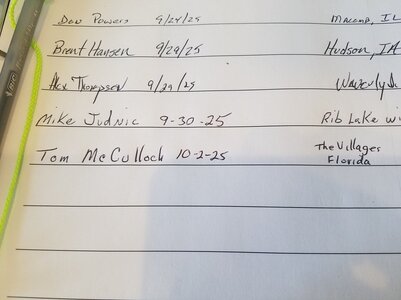 Dan Powers 9/29/25 Macomb, IL
Brent Hansen 9/29/25 Hudson, IA
Alex Thompson 9/29/25 Waverly
Mike Judnic 9-30-25 Rib Lake Wi
Tom McCulloch 10-2-25 The Villages
Florida
BIC